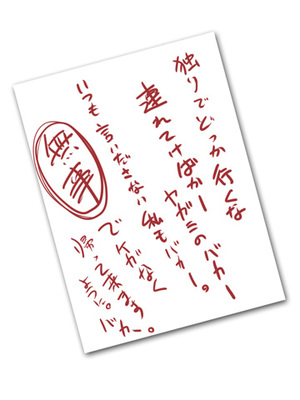 独りでどっか行くな
連れてけばかーヤガミのバカー
いつも言いださない私もバカー。
無事
でケガなく
帰って来ますように。バカ、。